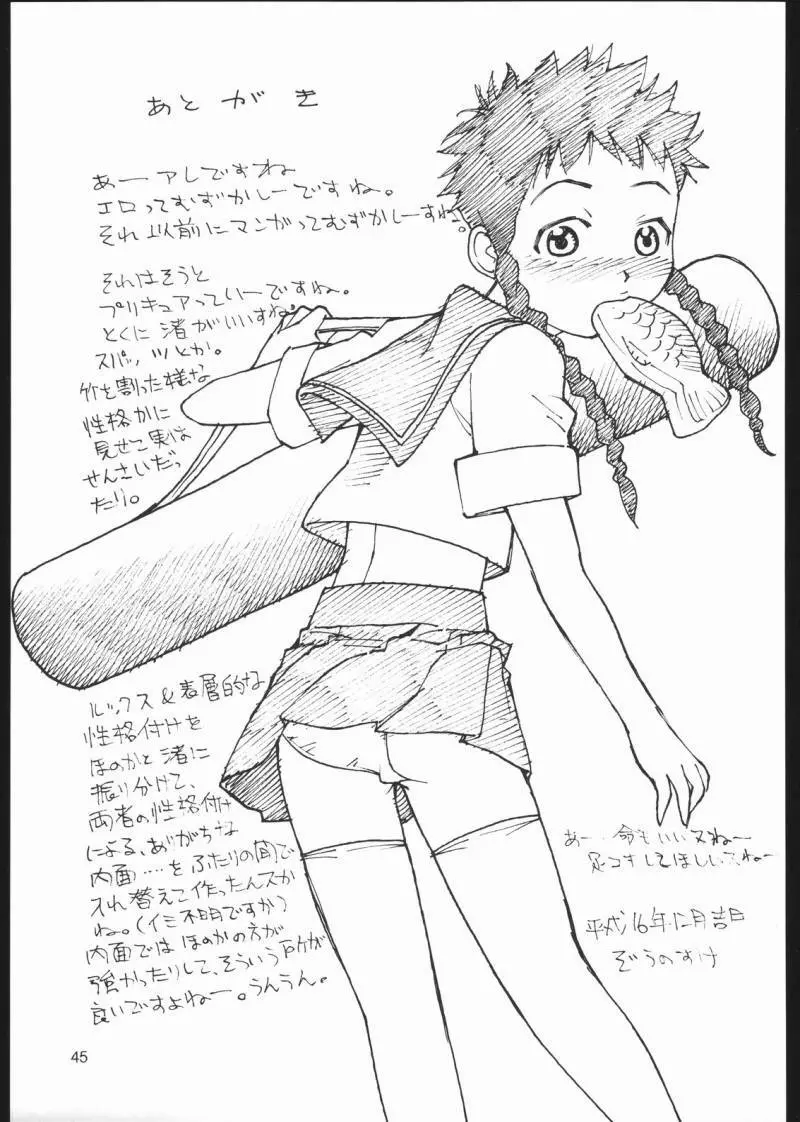 あとがき
あーアレですね
エロってむずかしーですね。
それ以前にマンガってむずかしーすね。
それはそうと
プリキュアっていーですね。
とくに渚がいいすね。
スパッツとか。
竹を割った様な
性格かに
見せて実は
せんさいだっ
たり。
ルックス&表層的な
性格付けを
ほのかと渚に
振り分けて、
両者の性格付け
による、ありがちな
内面‥‥をふたりの間で
入れ替えて作ったんスか
ね。(イミ不明ですか)
内面ではほのかの方が
強かったりして、そういうトケが
良いですよねー。うんうん。
あー‥命もいいスねー
足コキしてほしいスねー
平成16年12月吉日
ぞうのすけ
45